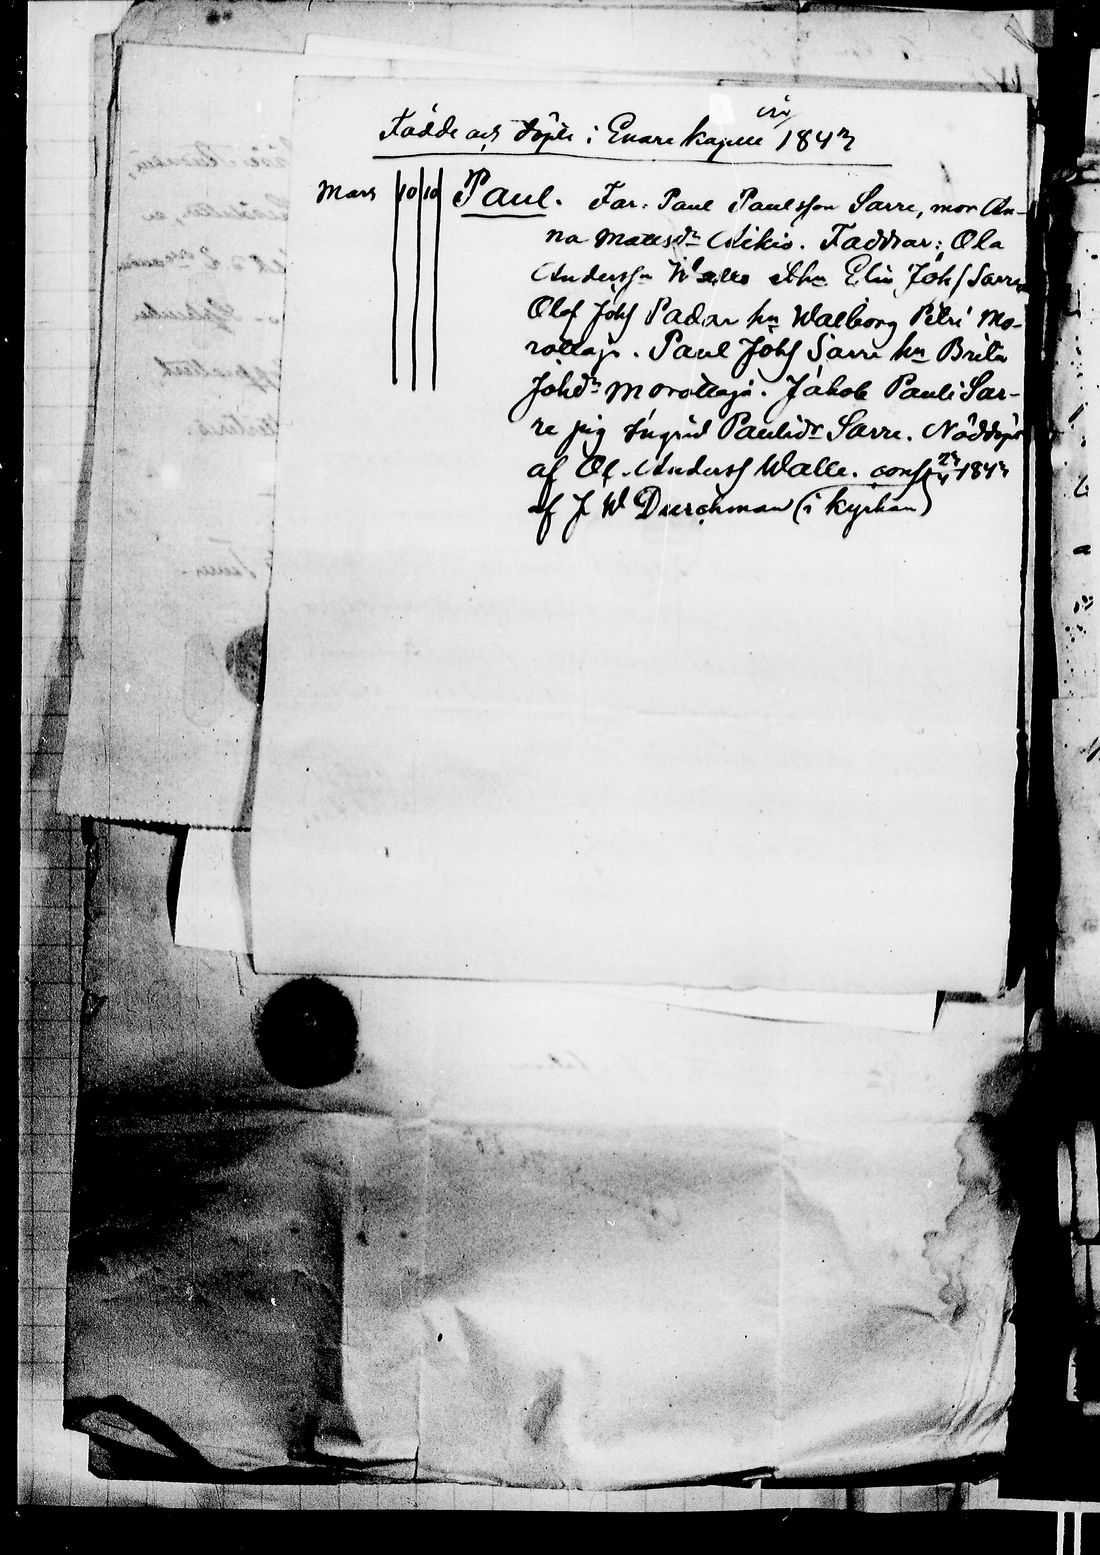 Födde och döpte i Enare kapell år 1843
Mars 10 10 Paul. Far: Paul Paulsson Sarre, mor An-
na Mattsdr Aikio. Faddrar: Ola
Andersson Walle o hu Elin Johs Sarre
Olof Johs Padar hu Walborg Petri Mo-
rottaja. Paul Johs Sarre hu Brita
Johdr Morottaja. Jakob Pauli Sar-
re pig Ingrid Paulidr Sarre. Nöddöpt
af Ol. Anderss Walle. conf 23/4 1843
af J W Durchman (i kyrkan)